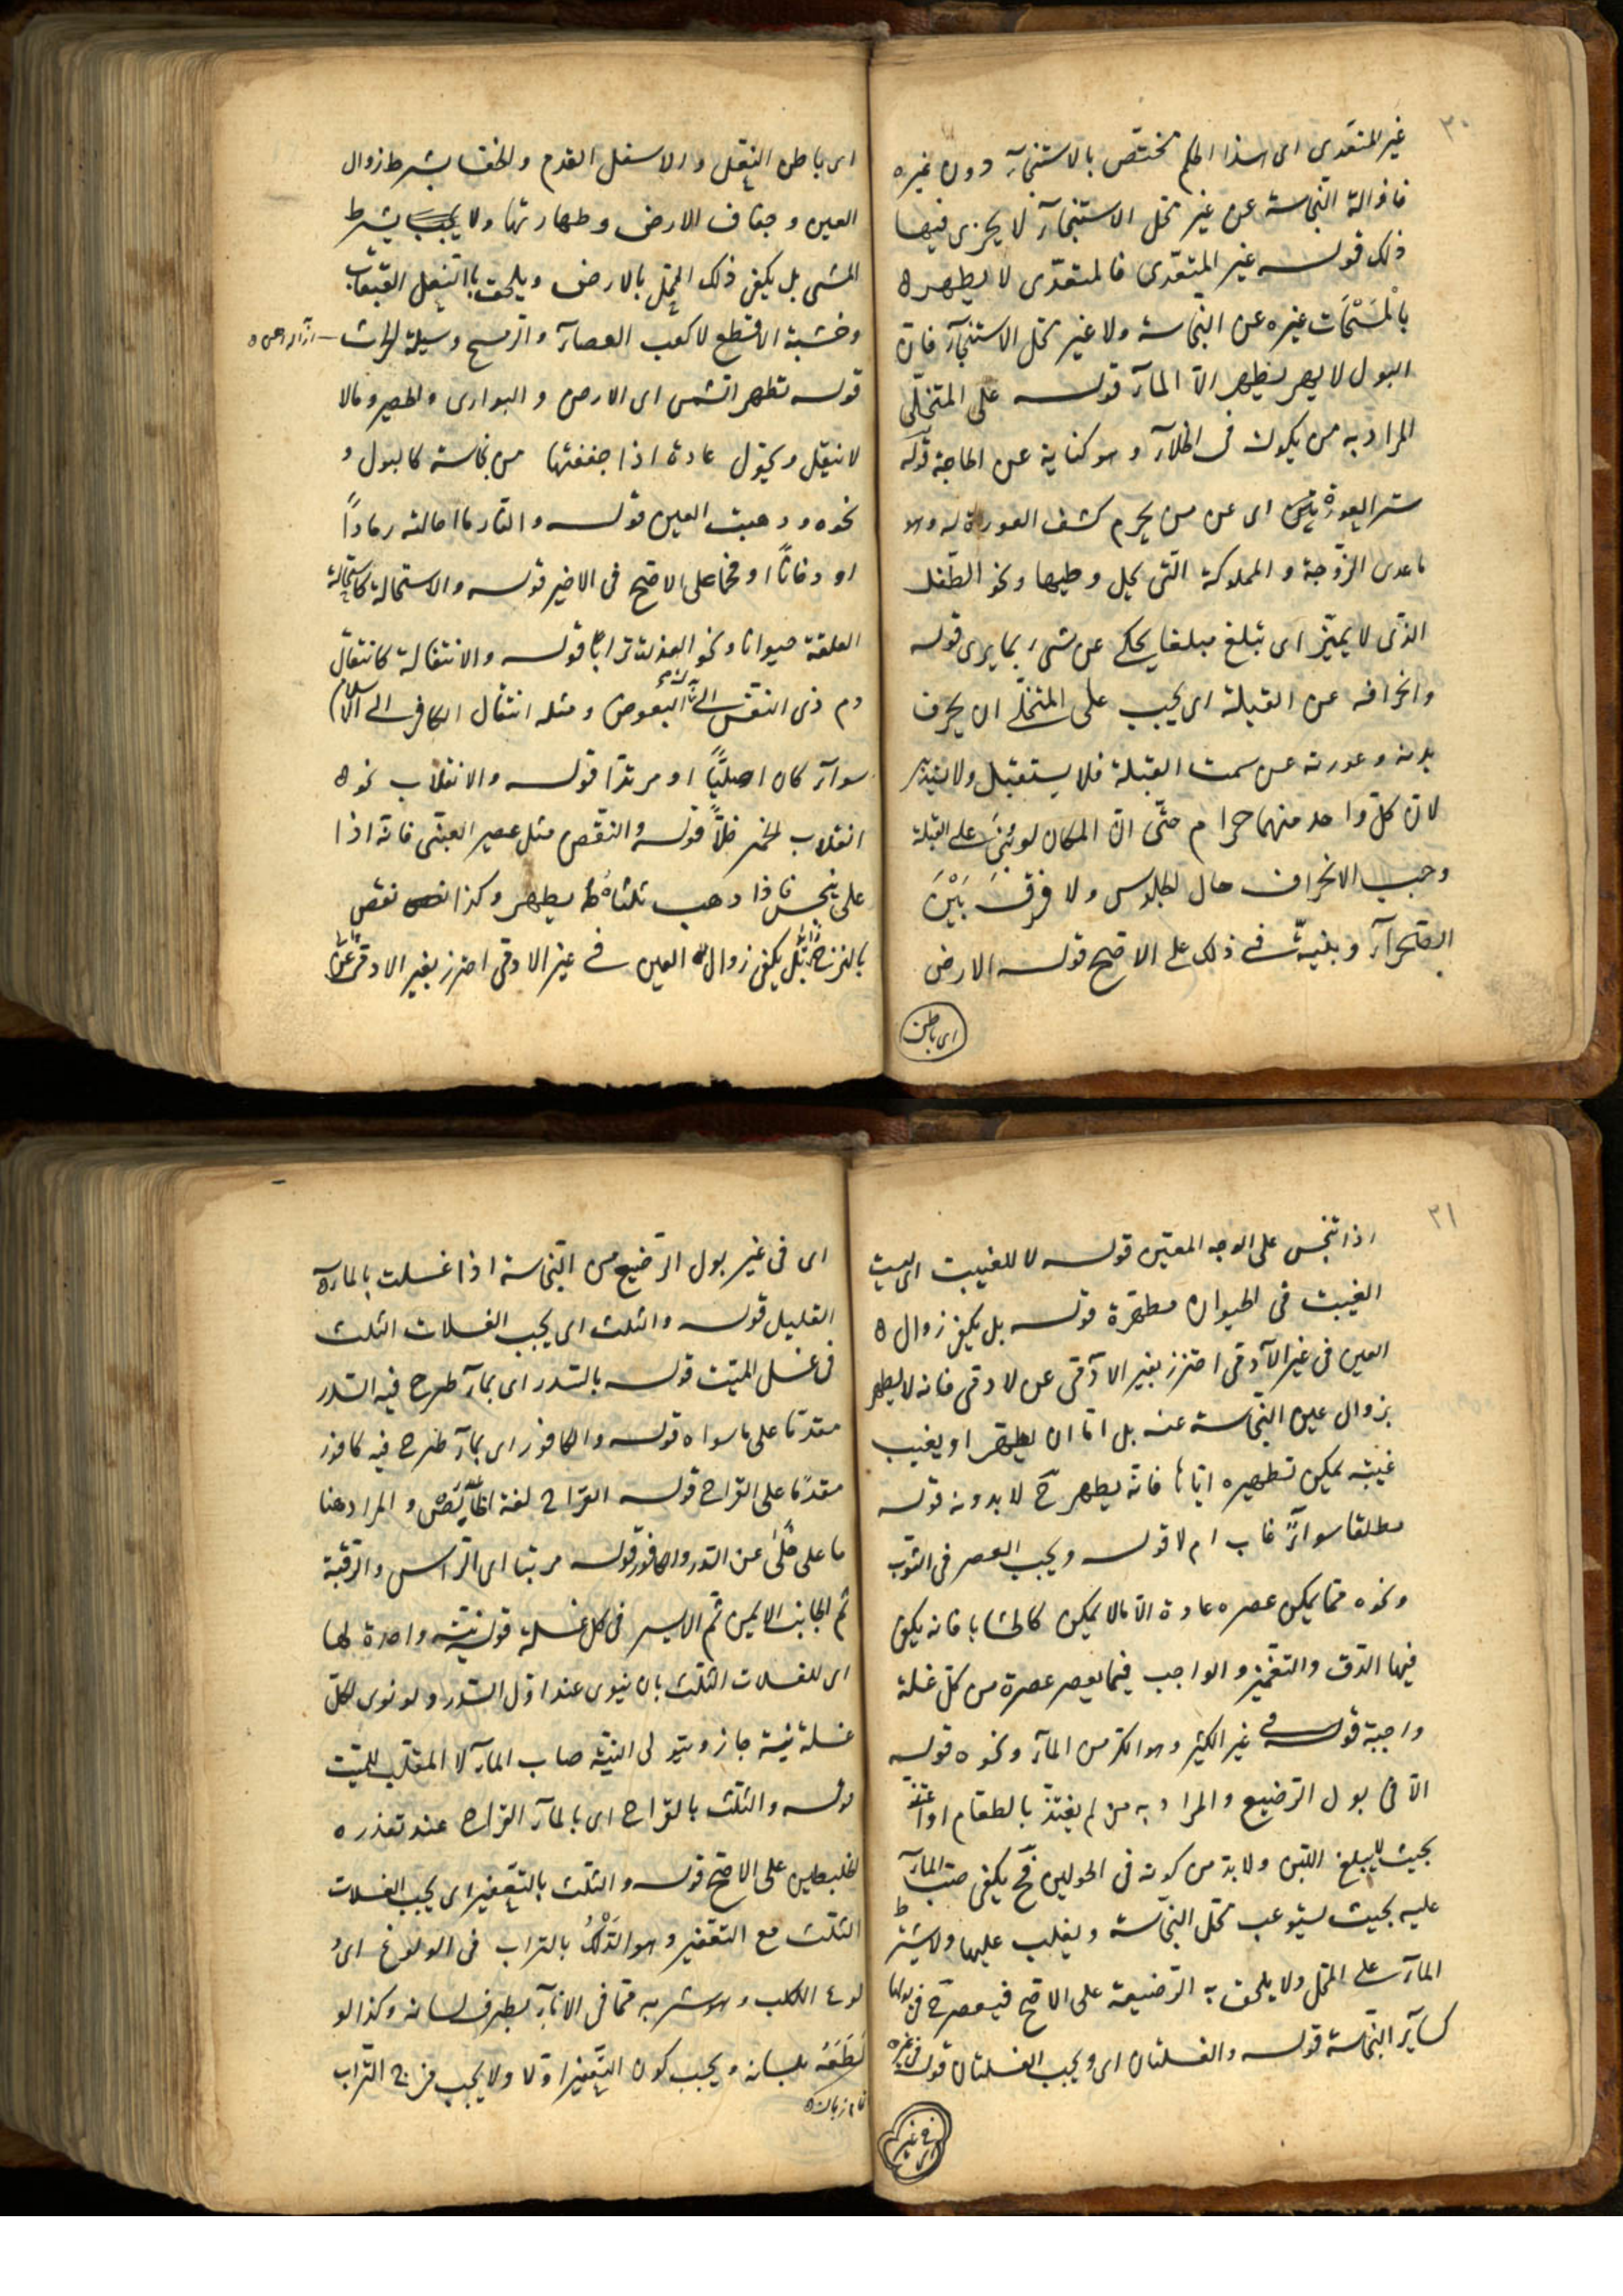 ٣٠
غير المتعدى اى هذا الحكم مختص بالاستنجآء دون غيره
فازالة النجاسة عن غير محل الاستنجآء لا يجزى فيها
ذلك قوله غير المتعدى فالمتعدى لا يطهره
بالمسحات غيره عن النجاسة ولا غير محل الاستنجآء فان
البول لا يطهره الا المآء قوله على المتخلى
المراد به من يكون فى الخلآء وهو كناية عن الحاجة قوله
ستر العورة اى عن من يحرم كشف العورة له وهو
ما عدى الزوجة والمملوكة التى يحل وطيها ونحو الطفل
الذى لا يميز اى تبلغ مبلغا يحكى عن شىء بما يرى قوله
وانحرافه عن القبلة اى يجب على المتخلى ان يحرف
بدنه وعورته عن سمت القبلة فلا يستقبل ولا يستدبر
لان كل واحد منهما حرام حتى ان المكان لو بنى على القبلة
وجب الانحراف حال الجلوس ولا فرق بين
الصحرآء وبنية فى ذلك على الاصح قوله الارض
اى باطن
اى باطن النعل والاسفل القدم والخف بشرط زوال
العين وجفاف الارض وطهارتها ولا يشترط
المشى بل يكفى ذلك المحل بالارض ويلحق بالنعل القبقاب
وخشبة الاقطع لا كعب العصآء والرمح وسيلة الحراث
قوله تطهر الشمس اى الارض والبوارى والحصير ومالا
لا ينقل ويحول عادة اذا جففتها من نجاسة كالبول و
نحوه وذهبت العين قوله والنار ما احالته رمادا
او دخانا او فحما على الاصح فى الاخير قوله والاستحالة كاستحالة
العلقة حيوانا ونحو العذرة ترابا قوله والانتقالة كانتقال
دم ذى النفس الى البعوض ومثله انتقال الكافر الى الاسلام
سوآء كان اصليا او مرتدا قوله والانقلاب نحوه
انقلاب الخمر خلا قوله والنقص مثل عصير العنبى فانه اذا
غلى ينجس فاذا ذهب ثلثاه يطهر وكذا نقص
بالنزح بل يكفى زوال العين فى غير الادمى احترز بغير الادمى عن
٣١
اذا تنجس على الوجه المعتبر قوله لا للغيبت اى ليست
الغيبت فى الحيوان مطهرة قوله بل يكفى زوال
العين فى غير الآدمى احترز بغير الادمى عن الادمى فانه لا يطهر
بزوال عين النجاسة عنه بل اما ان يطهر او يغيب
غيبة يمكن تطهيره اياها فانه يطهر ح لا بدونه قوله
مطلقا سوآء غاب ام لا قوله ويجب العصر فى الثوب
ونحوه مما يمكن عصره عادة الا مالا يمكن كالحشايا فانه يكفى
فيها الدق والتغميز والواجب فيما يعصر عصرة من كل غسلة
واجبة قوله فى غير الكثير وهو الكر من المآء ونحوه قوله
الا فى بول الرضيع والمراد به من لم يغتذ بالطعام او اغتذ
بحيث لا يبلغ اللبن ولا بد من كونه فى الحولين فح يكفى صب المآء
عليه بحيث يستوعب محل النجاسة ويغلب عليها ولا يشترط
المآء على المحل ولا يلحق به الرضيعة على الاصح فيعصر ح فى بولها
كسآير النجاسة قوله والغسلتان اى ويجب الغسلتان قوله فى غيره
اى فى غير
اى فى غير بول الرضيع من النجاسة اذا غسلت بالمآء
القليل قوله والثلث اى يجب الغسلات الثلث
فى غسل الميت قوله بالسدر اى بمآء طرح فيه السدر
مقدما على ما سواه قوله والكافور اى بمآء طرح فيه كافور
مقدما على القراح قوله القراح لغة الخآلص والمراد هنا
ما على خلى عن السدر والكافور قوله مرتبا اى الراس والرقبة
ثم الجانب الايمن ثم الايسر فى كل غسلة قوله بنية واحدة لها
اى للغسلات الثلث بان ينوى عند اول السدر ولو نوى لكل
غسلة نية جاز ويتولى النية صاب المآء لا المقلب للميت
قوله والثلث بالقراح اى بالمآء القراح عند تعذره
الخليطين على الاصح قوله والثلث بالتعفير اى يجب الغسلات
الثلث مع التعفير وهو الدلك بالتراب فى الولوغ اى
لوغ الكلب وهو شربه مما فى الانآء بطرف لسانه وكذا لو
لطعه بلسانه ويجب كون التعفير اولا ولا يجب مزج التراب